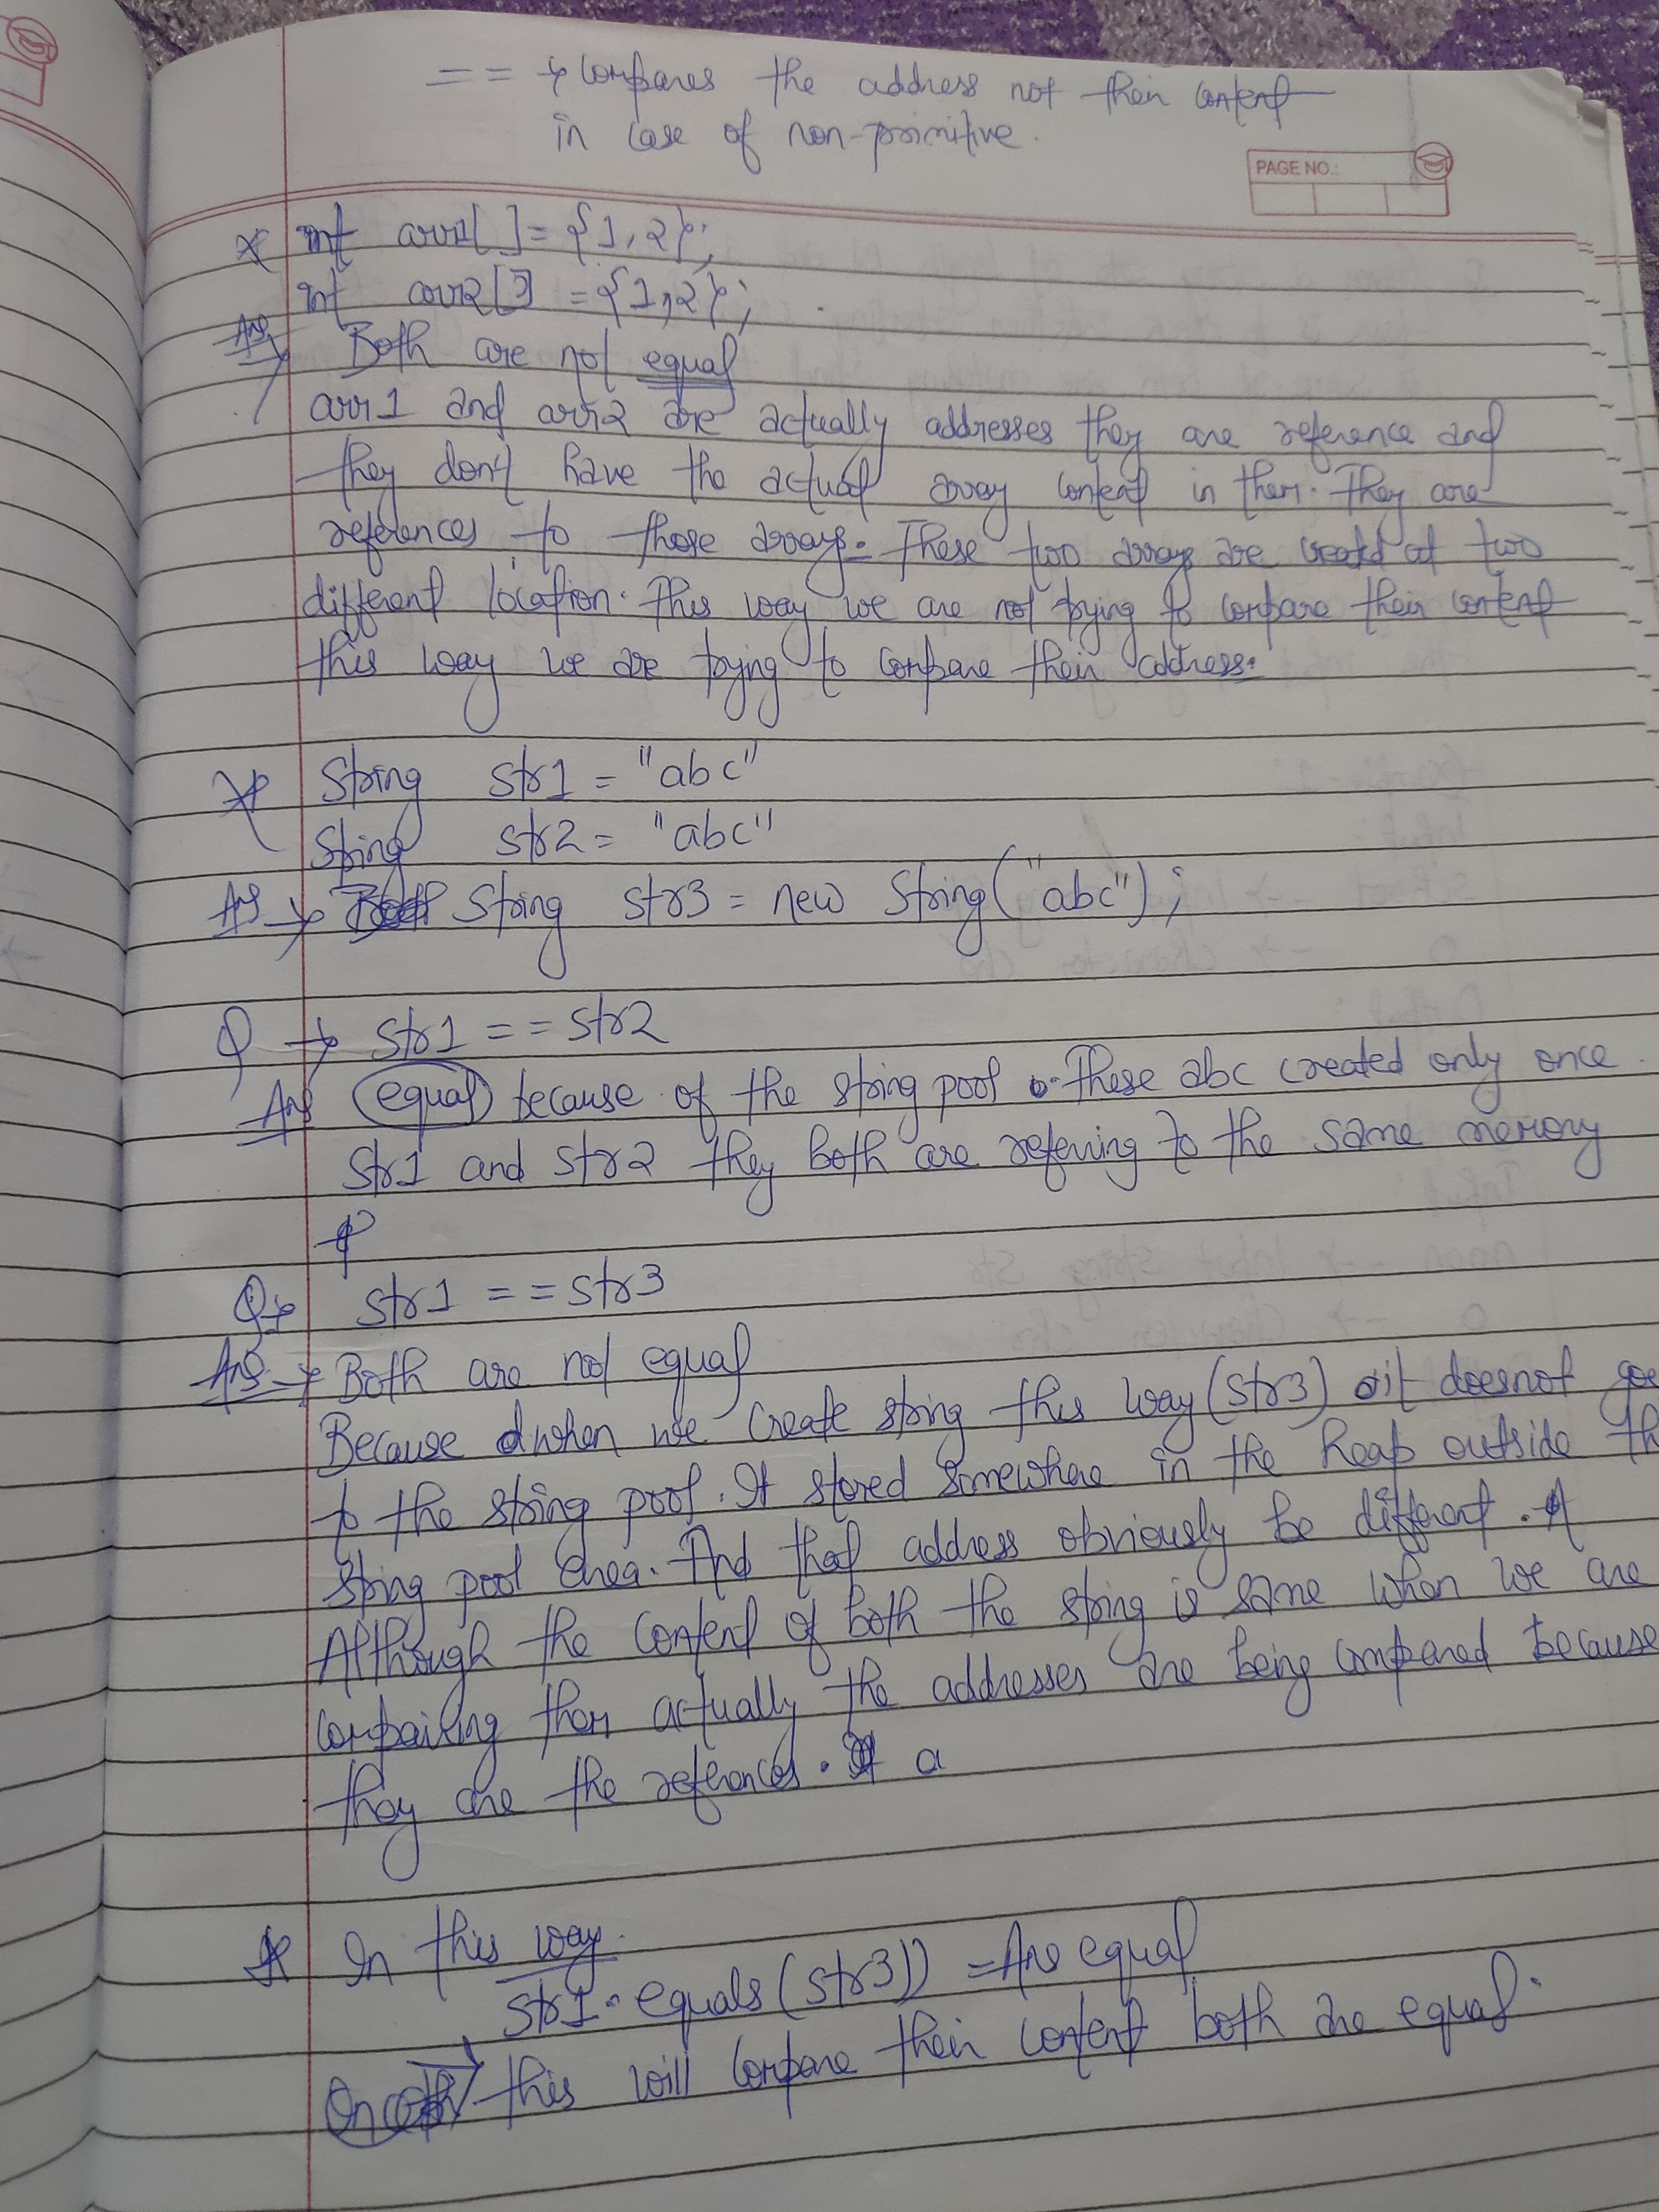 == → Compares the address not their content
in case of non-primitive.
PAGE NO.:
* int arr1[ ] = {1, 2};
int arr2[ ] = {1, 2};
Ans → Both are not equal
arr1 and arr2 are actually addresses they are reference and
they don't have the actual array content in them. They are
references to those arrays. These two arrays are created at two
different location. This way we are not trying to compare their content
this way we are trying to compare their address.
* String str1 = "abc"
String str2 = "abc"
Ans → String str3 = new String("abc");
Q → str1 == str2
Ans equal because of the string pool. These abc created only once.
str1 and str2 they both are referring to the same memory
Q → str1 == str3
Ans → Both are not equal
Because when we create string this way (str3) it doesnot goe
to the string pool. It stored somewhere in the heap outside th
string pool area. And that address obviously be different.
Although the content of both the string is same when we are
compairing them actually the addresses are being compared because
they are the references. a
* In this way.
str1.equals(str3)) = Are equal
→ this will compare their content both are equal.